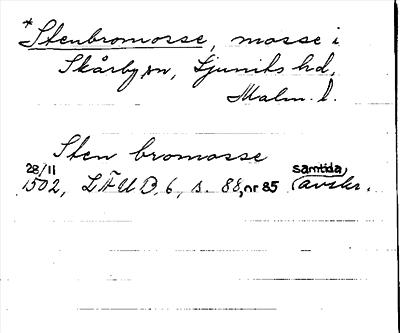 *Stenbromosse, mosse i
Skårby sn, Ljunits hd,
Malm. l.
Sten bromosse
28/11 samtida
1502, LÄUB, 6, s. 88, nr 85 (avskr.